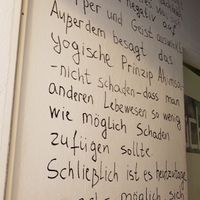 negativ auf
Körper und Geist auswirkt.
Außerdem besagt das
yogische Prinzip Ahimsa
-nicht Schaden-dass man
anderen Lebewesen so wenig
wie möglich Schaden
zufügen sollte.
Schließlich ist es heutzutage
möglich sich